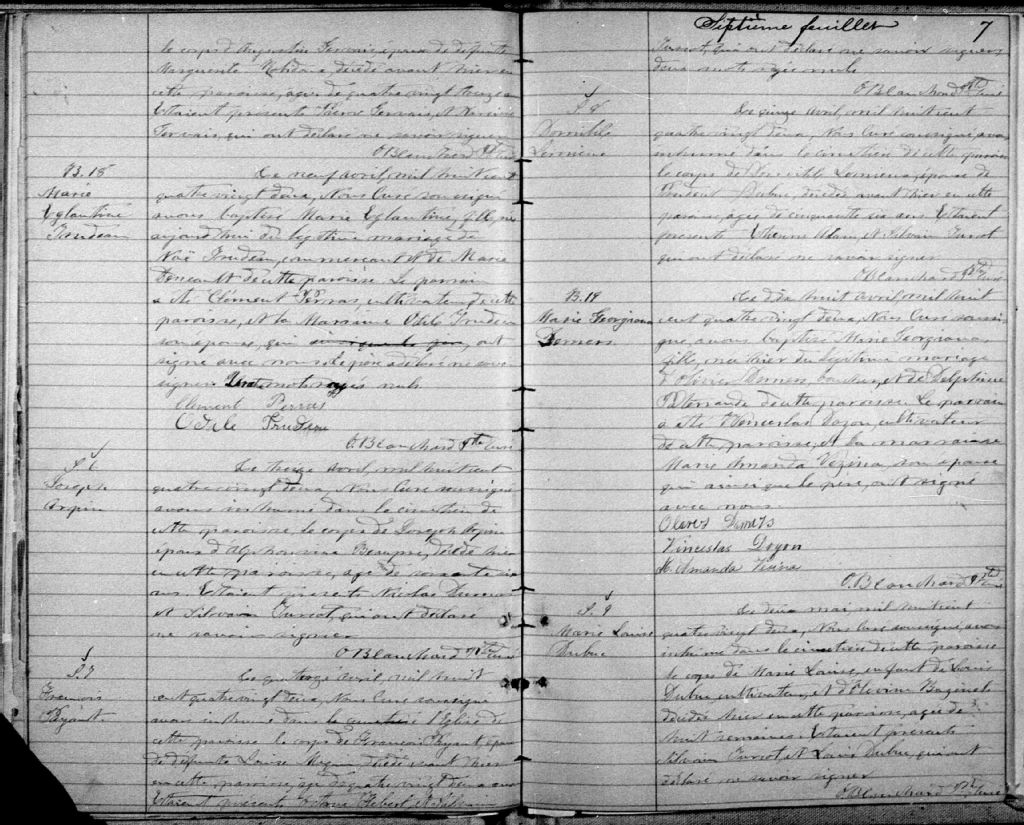 le corps d'Augustin Gervais, époux de défunte
Marguerite decédé avant hier en
cette paroisse, agé de quatre vingt
Etaient presents Pierre Gervais, et Narcisse
Gervais, qui ont déclaré ne savoir signer
O Blanchard Ptre Curé
B. 18
Marie
Eglantine
Trudeau
Le neuf avril, mil huit cent
quatre vingt deux, Nous Curé soussigné
avons baptisé Marie Eglantine, fille née
aujourd'hui du légitime mariage de
Noé Trudeau, commercant et de Marie
de cette paroisse Le parrain
a été Clément Perras, cultivateur de cette
paroisse, et la Marraine Odile Trudeau
son épouse, qui ont
signé avec nous. Le père a déclaré ne savoir
signer. mots rayés nuls
Clement Perras
Odile Trudeau
O Blanchard Ptre Curé
S. 6
Joseph
Arpin
Le treize avril, mil huit cent
quatre vingt deux, Nous Curé soussigné
avons inhumé dans le cimetière de
cette paroisse, le corps de Joseph Arpin
époux d'Alphonsine Beaupré, décédé hier
en cette paroisse, agé de soixante six
ans Etaient presents Nicolas
et Silvain Turcot, qui ont déclaré
ne savoir signer.
O Blanchard Ptre Curé
S. 7
Francois
Phyant
Le quatorze avril, mil huit
cent quatre vingt deux, Nous Curé soussigné
avons inhumé dans le l'Eglise de
cette paroisse le corps de François Phyant époux
de défunte Louise décédé avant hier
en cette paroisse, agé de quatre vingt deux ans
Etaient presents Octave Hebert et Silvain
Septième feuillet 7
Turcot, qui ont déclaré ne savoir signer,
deux mots rayés nuls
O Blanchard Ptre Curé
S. 8
Domitile
Lemieux
Le quinze avril, mil huit cent
quatre vingt deux, Nous Curé soussigné avons
inhumé dans le cimetière de cette paroisse
le corps de Domitile Lemieux, épouse de
Prudent Dubuc, décédée avant hier en cette
paroisse, agée de cinquante six ans Etaient
presents Etienne Adam, et Silvain Turcot
qui ont déclaré ne savoir signer
O Blanchard Ptre Curé
B. 19
Marie Georgiana
Demers
Le dix huit avril, mil huit
cent quatre vingt deux, Nous Curé soussi-
gné, avons baptisé Marie Georgiana
fille, née hier du légitime mariage
d'Olivier Demers, et de Delphine
de cette paroisse. Le parrain
a été Vinceslas Doyon, cultivateur
de cette paroisse, et la marraine
Marie Amanda Vezina, son épouse
qui ainsi que le père, ont signé
avec nous.
Oliver Demers
Vinceslas Doyon
M. Amanda Vézina
O. Blanchard Ptre Curé
S. 9
Marie Louise
Dubuc
Le deux mai, mil huit cent
quatre vingt deux, Nous Curé soussigné, avons
inhumé dans le cimetière de cette paroisse
le corps de Marie Louise, enfant de Louis
Dubuc, cultivateur, et d'Olevine Bazinet
décédée hier en cette paroisse, agée de
huit semaines. Etaient presents
Silvain Turcot, et Louis Dubuc, qui ont
déclaré ne savoir signer
O. Blanchard Ptre Curé